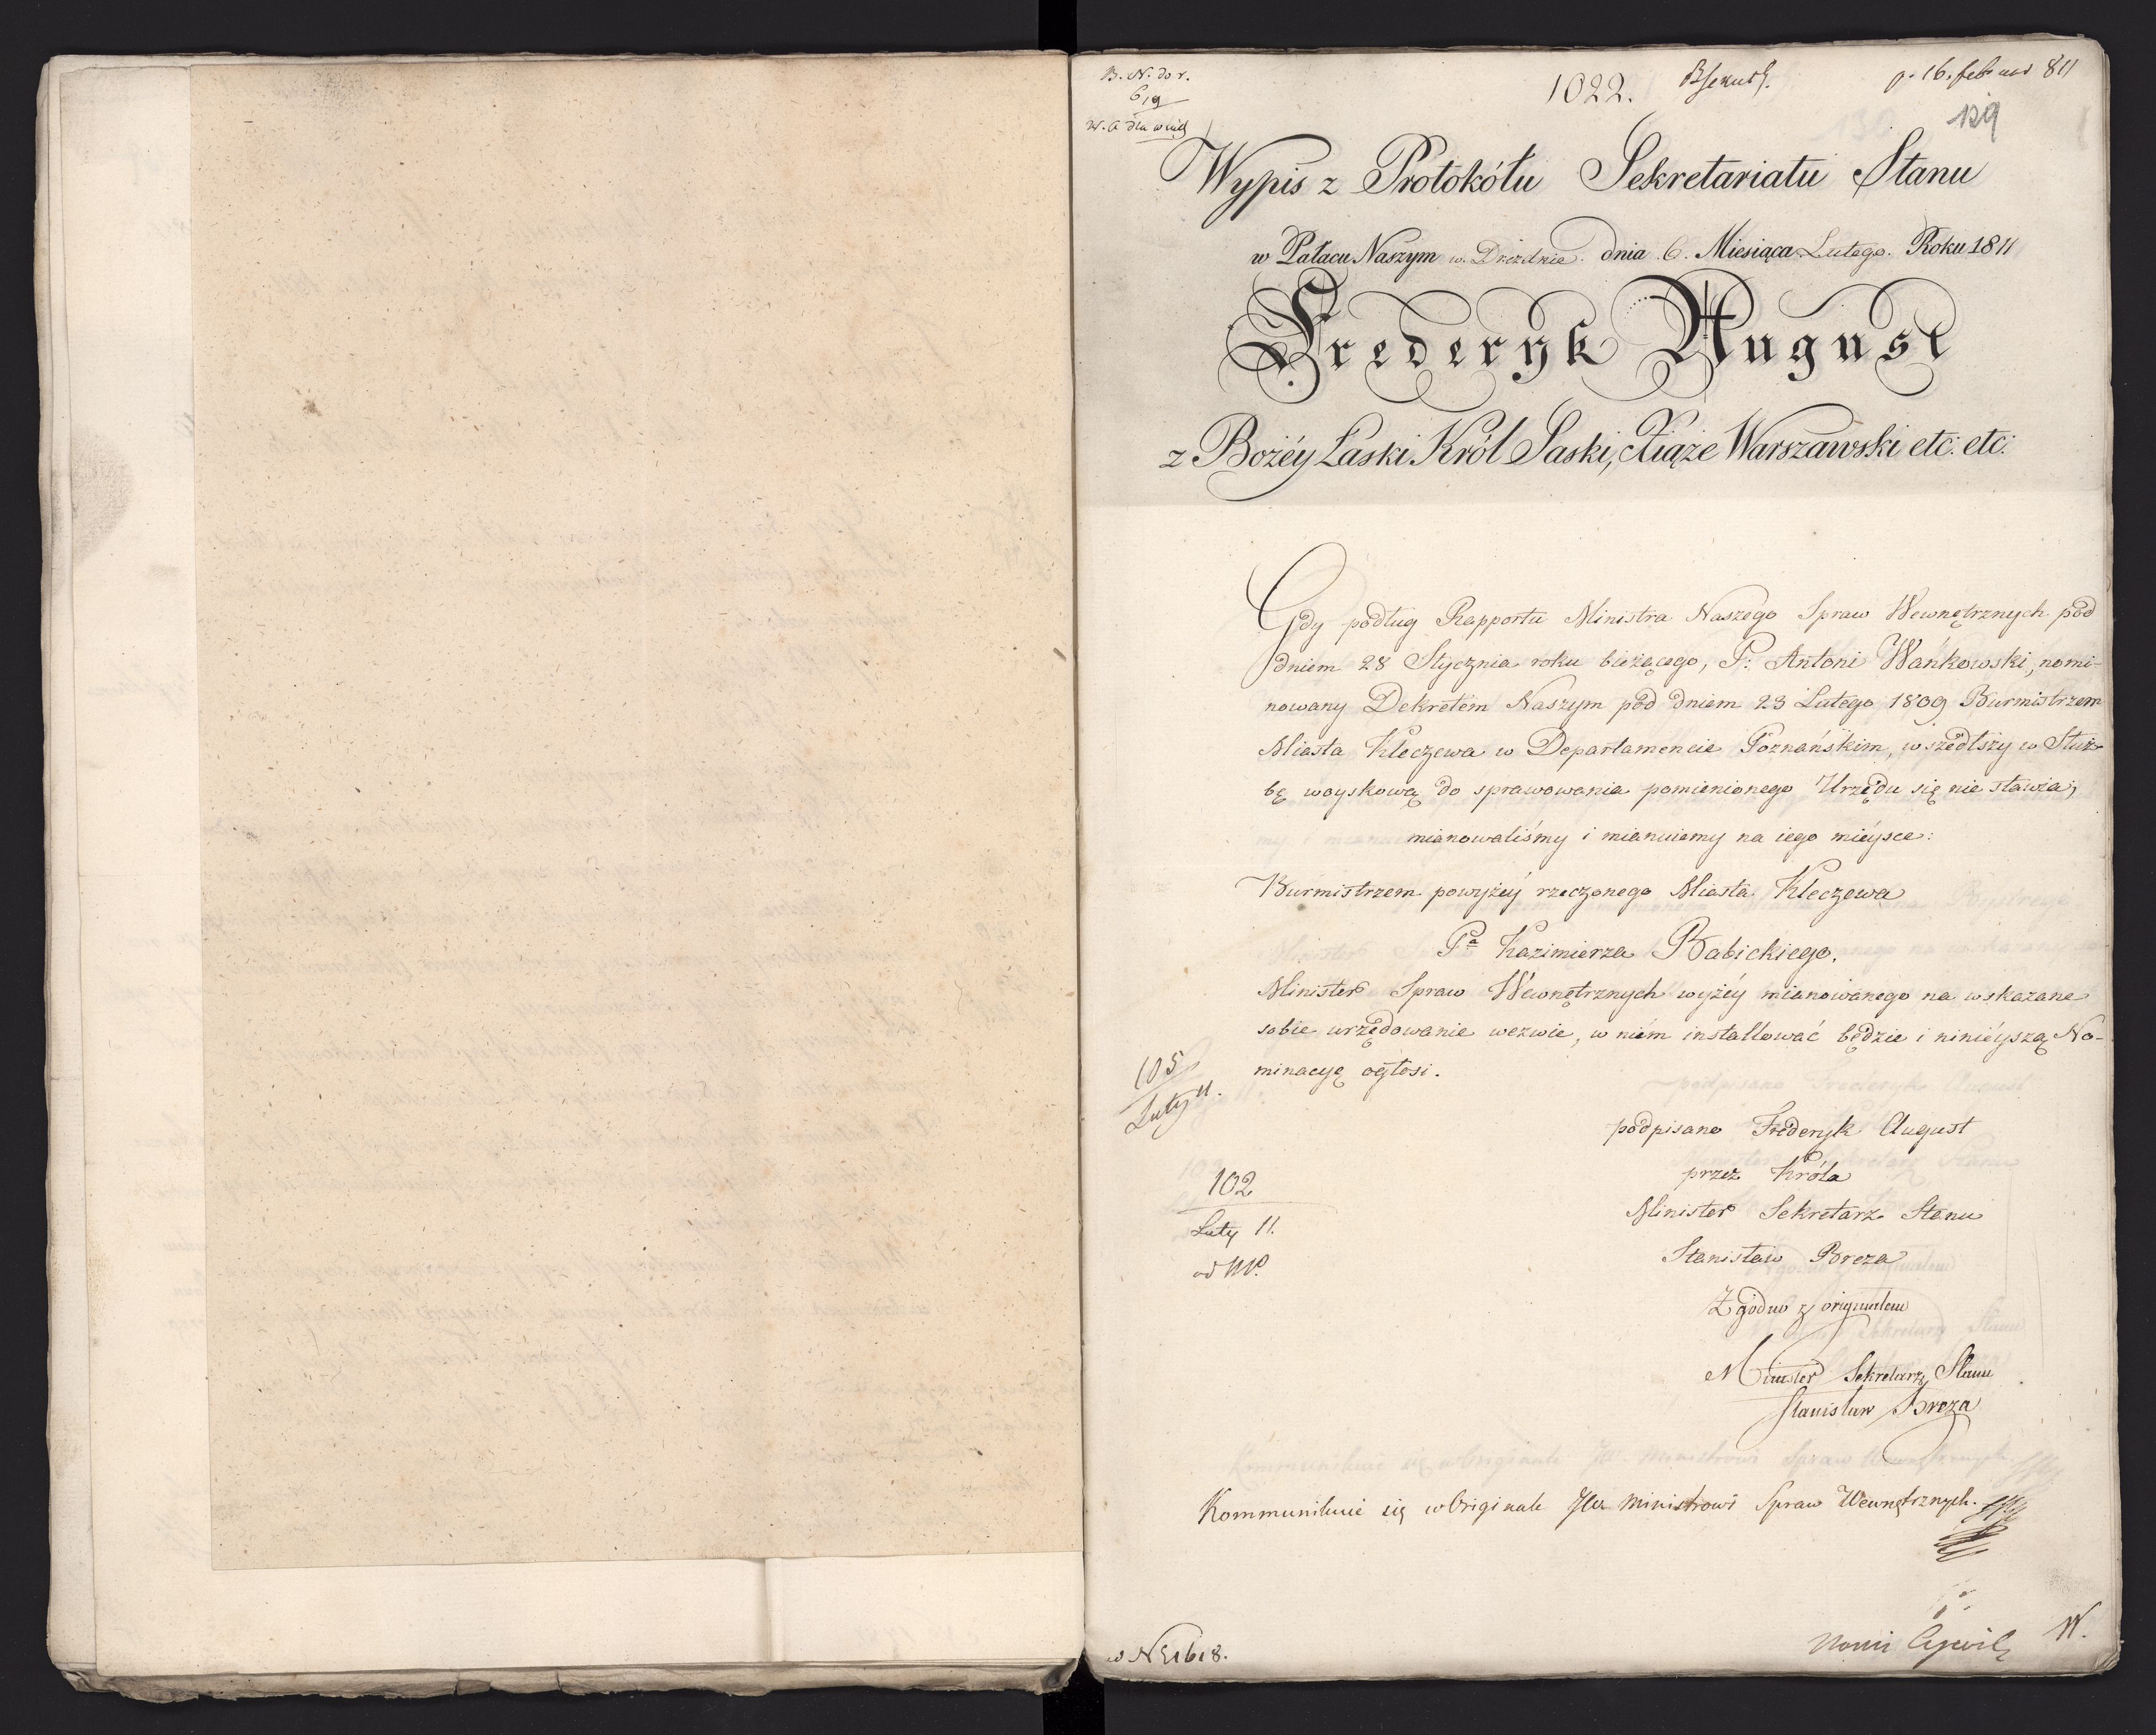 B. N. do r.
619
1022.
p. 16. febr 811
129
Wypis z Protokółu Sekretariatu Stanu
w Pałacu Naszym w. Dreźdnie. dnia 6. Miesiąca Lutego. Roku 1811
Frederyk August
z Bożéy Łaski Król Saski, Xiąże Warszawski etc: etc:
Gdy podług Rapportu Ministra Naszego Spraw Wewnętrznych pod
dniem 28 Stycznia roku bieżącego, P: Antoni Wańkowski, nomi-
nowany Dekretem Naszym pod dniem 23 Lutego 1809 Burmistrzem
Miasta Kleczewa w Departamencie Poznańskim, wszedłszy w Służ-
bę woyskową do sprawowania pomienionego Urzędu się nie stawia,
mianowaliśmy i mianuiemy na iego mieysce:
Burmistrzem powyżéy rzeczonego Miasta Kleczewa
Pa Kazimierza Babickiego.
Minister Spraw Wewnętrznych wyżéy mianowanego na wskazane
sobie urzędowanie wezwie, w niém installować będzie i ninieyszą No-
minacyę ogłosi.
105
Luty 11.
podpisano Frederyk August
przez Króla
102
Minister Sekretarz Stanu
Luty 11.
Stanisław Breza
od
Zgodno z originałem
Minister Sekretarz Stanu
Stanisław Breza
Kommunikuie się w Originale JW. Ministrowi Spraw Wewnętrznych.
w N 51618.
W.